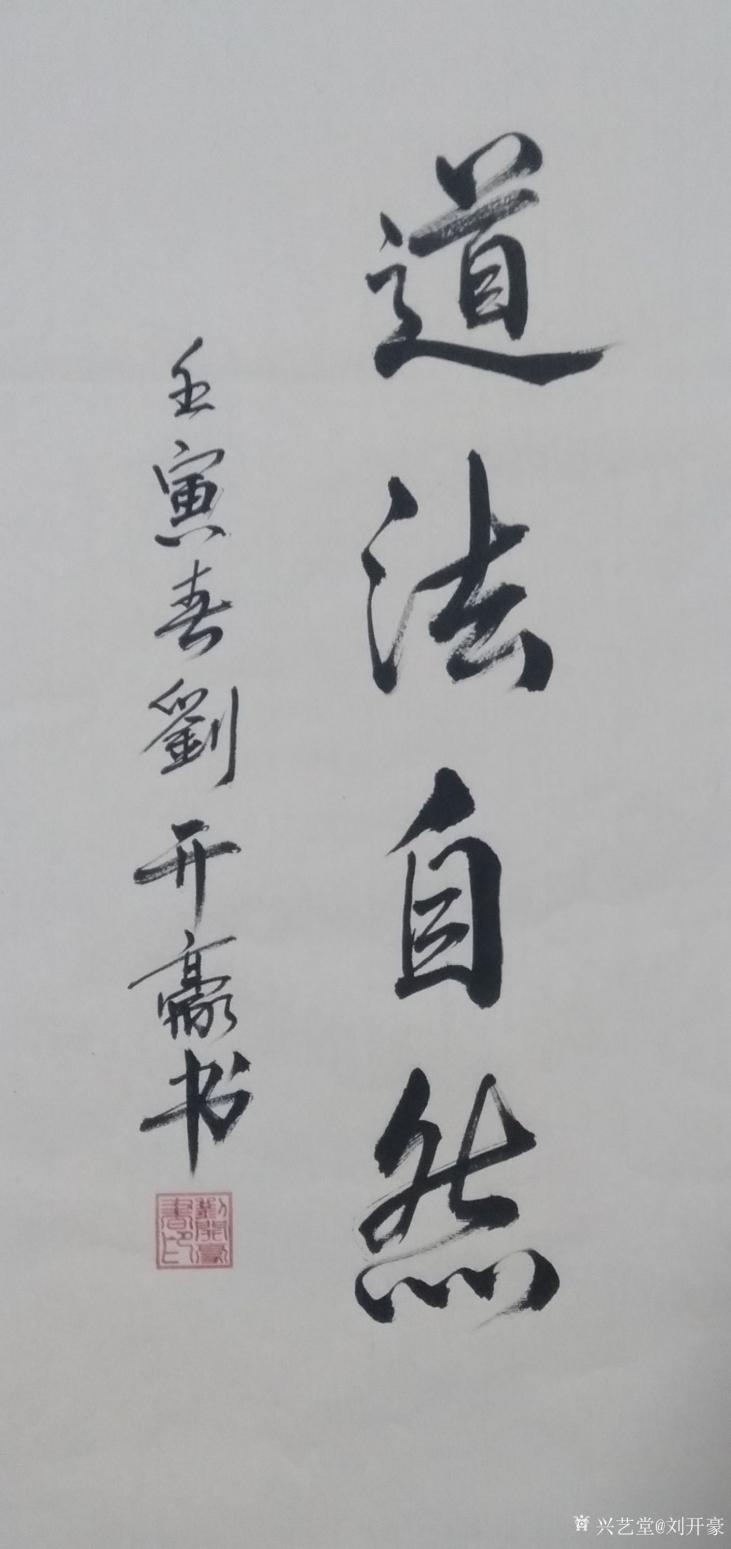 道法自然
壬寅春劉开豪书
劉開豪書印
兴艺堂@刘开豪